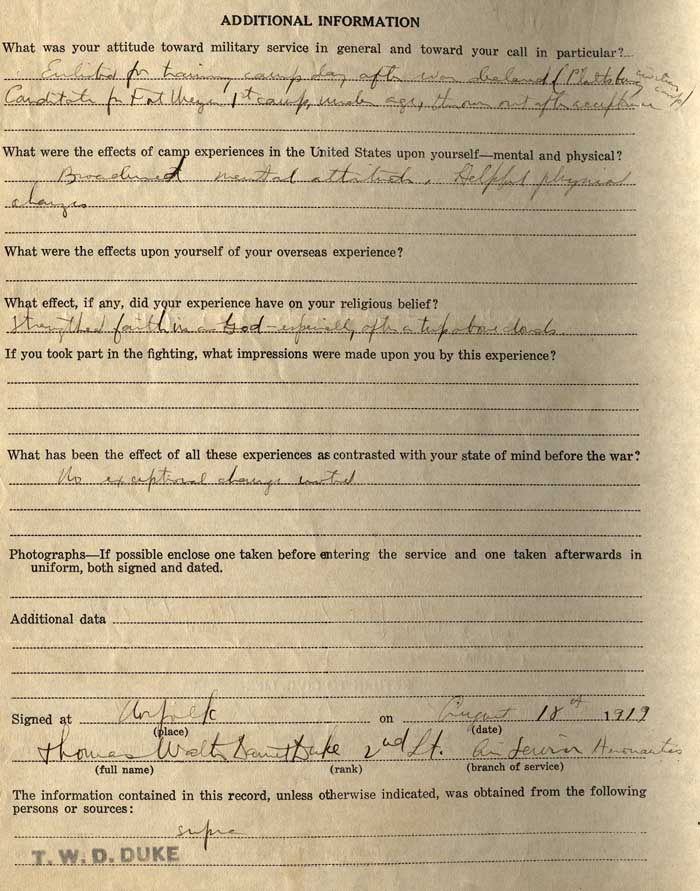 ADDITIONAL INFORMATION
What was your attitude toward military service in general and toward your call in particular?
Enlisted for training camp day after war declared (Plattsburg
camp)
Candidate for Fort Myer 1st camp, under age, thrown out after acceptance
What were the effects of camp experiences in the United States upon yourself—mental and physical?
Broadened mental attitude. Helpful physical
changes
What were the effects upon yourself of your overseas experience?
What effect, if any, did your experience have on your religious belief?
Strengthened faith in a God - especially after a trip above clouds
If you took part in the fighting, what impressions were made upon you by this experience?
What has been the effect of all these experiences as contrasted with your state of mind before the war?
No exceptional change noted
Photographs—If possible enclose one taken before entering the service and one taken afterwards in
uniform, both signed and dated.
Additional data
Signed at Norfolk on August 18th 1919
(place) (date)
Thomas Walter Duke 2nd Lt. Air Service Aeronautics
(full name) (rank) (branch of service)
The information contained in this record, unless otherwise indicated, was obtained from the following
persons or sources:
supra
T. W. D. DUKE